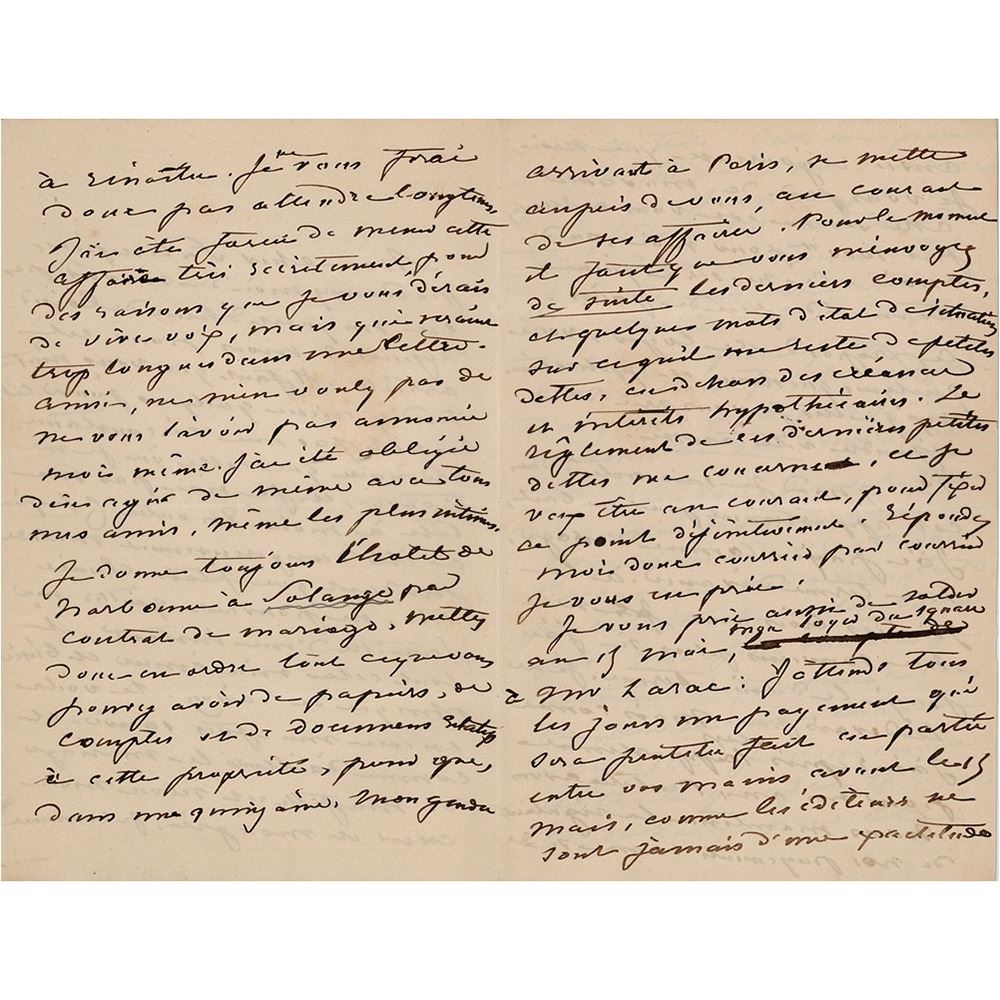 à        . Je ne vous ferai
donc pas attendre longtems.
J'ai été forcée de mener cette
affaire très secrètement, pour
des raisons que je vous dirais
de vive voix, mais qui seraient
trop longues dans une lettre.
ainsi, ne m'en voulez pas de
ne vous l'avoir pas annoncé
moi même. J'ai été obligée
d'en agir de même avec tous
mes amis, même les plus intimes.
Je donne toujours l'hotel de
Narbonne à Solange par
contrat de mariage, mettez
donc en ordre tout ce que vous
pouvez avoir de papiers, de
comptes et de documens relatifs
à cette propriété, pour que,
dans une quinzaine, mon gendre
arrivant à Paris, se mette
auprès de vous, au courant
de ses affaires. Pour le moment
il faut que vous m'envoyez
de suite les derniers comptes,
et quelques mots d'état de situation
sur ce qu'il me reste de petites
dettes, en dehors des créances
et intérêts hypothécaires. Le
règlement de ces dernières petites
dettes me concerne, et je
veux être au courant, pour fixer
ce point définitivement. Répondez
moi donc courrier par courrier
je vous en prie.
Je vous prie aussi de solder
au 15 mai, mon loyer du square
à Mr Larac : J'attends tous
les jours un payement qui
sera peutêtre fait en partie
entre vos mains avant le 15
mais, comme les éditeurs ne
sont jamais d'une exactitude